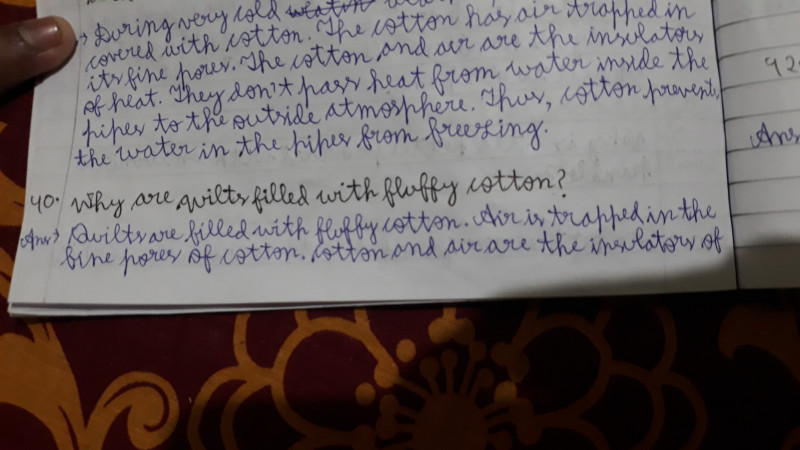 → During very cold
covered with cotton. The cotton has air trapped in
its fine pores. The cotton and air are the insulators
of heat. They don't pass heat from water inside the
pipes to the outside atmosphere. Thus, cotton prevents
the water in the pipes from freezing.
40. Why are quilts filled with fluffy cotton?
Ans→ Quilts are filled with fluffy cotton. Air is trapped in the
fine pores of cotton. Cotton and air are the insulators of
42
Ans